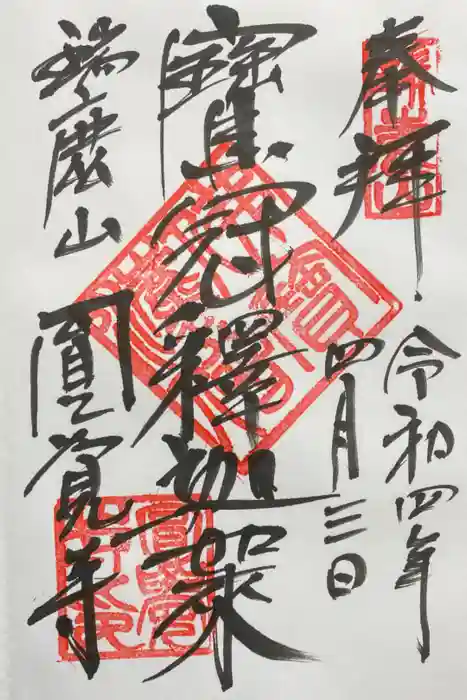 奉拝
令和四年
四月三日
寶冠釋迦如来
瑞鹿山
圓覚寺